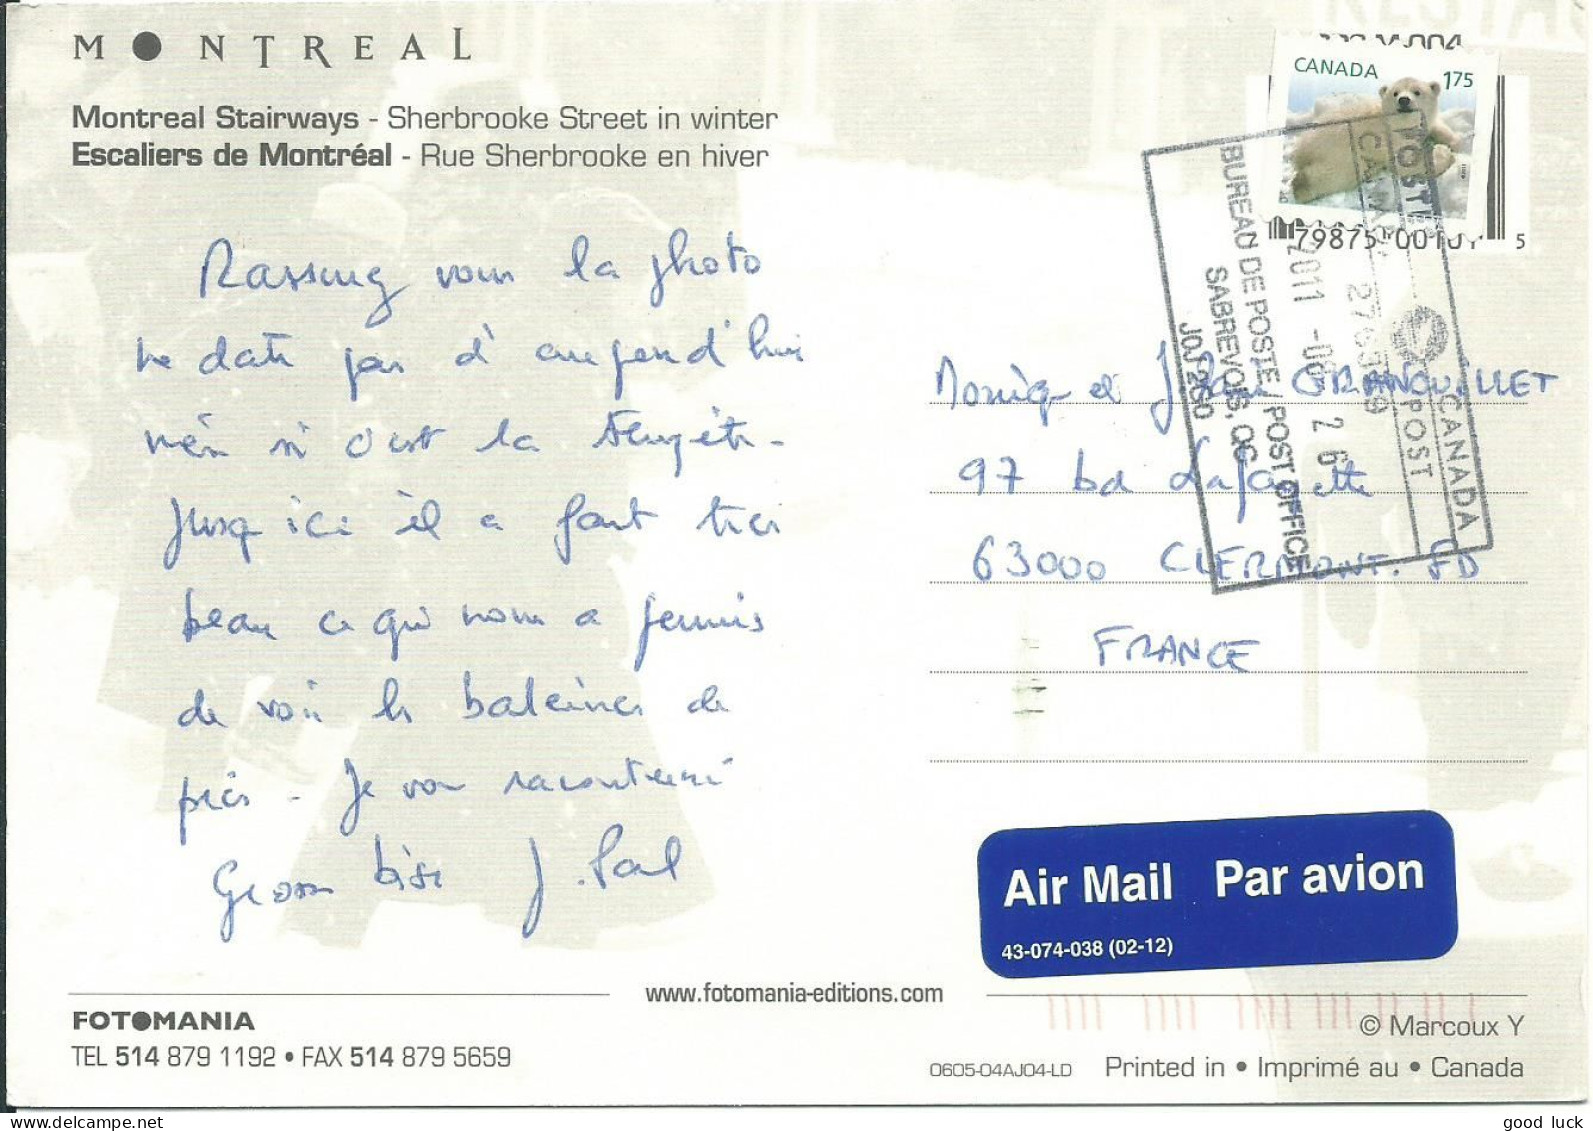 MONTREAL
Montreal Stairways - Sherbrooke Street in winter
Escaliers de Montréal - Rue Sherbrooke en hiver
Rassurez vous la photo
ne date pas d'aujourd'hui
ni c'est la tempête.
Jusqu'ici il a fait très
beau ce qui nous a permis
de voir les baleines de
près. Je vous raconterai
Grosses bises J. Paul
CANADA 175
79875 00101 5
POSTES CANADA
CANADA POST
276399
2011 -08 26
BUREAU DE POSTE / POST OFFICE
SABREVOIS, QC
J0J 2G0
Monique et J GRANOUILLET
97 bd Lafayette
63000 CLERMONT. FD
FRANCE
Air Mail Par avion
43-074-038 (02-12)
www.fotomania-editions.com
FOTOMANIA
TEL 514 879 1192 • FAX 514 879 5659
© Marcoux Y
0605-04AJ04-LD
Printed in • Imprimé au • Canada
good luck